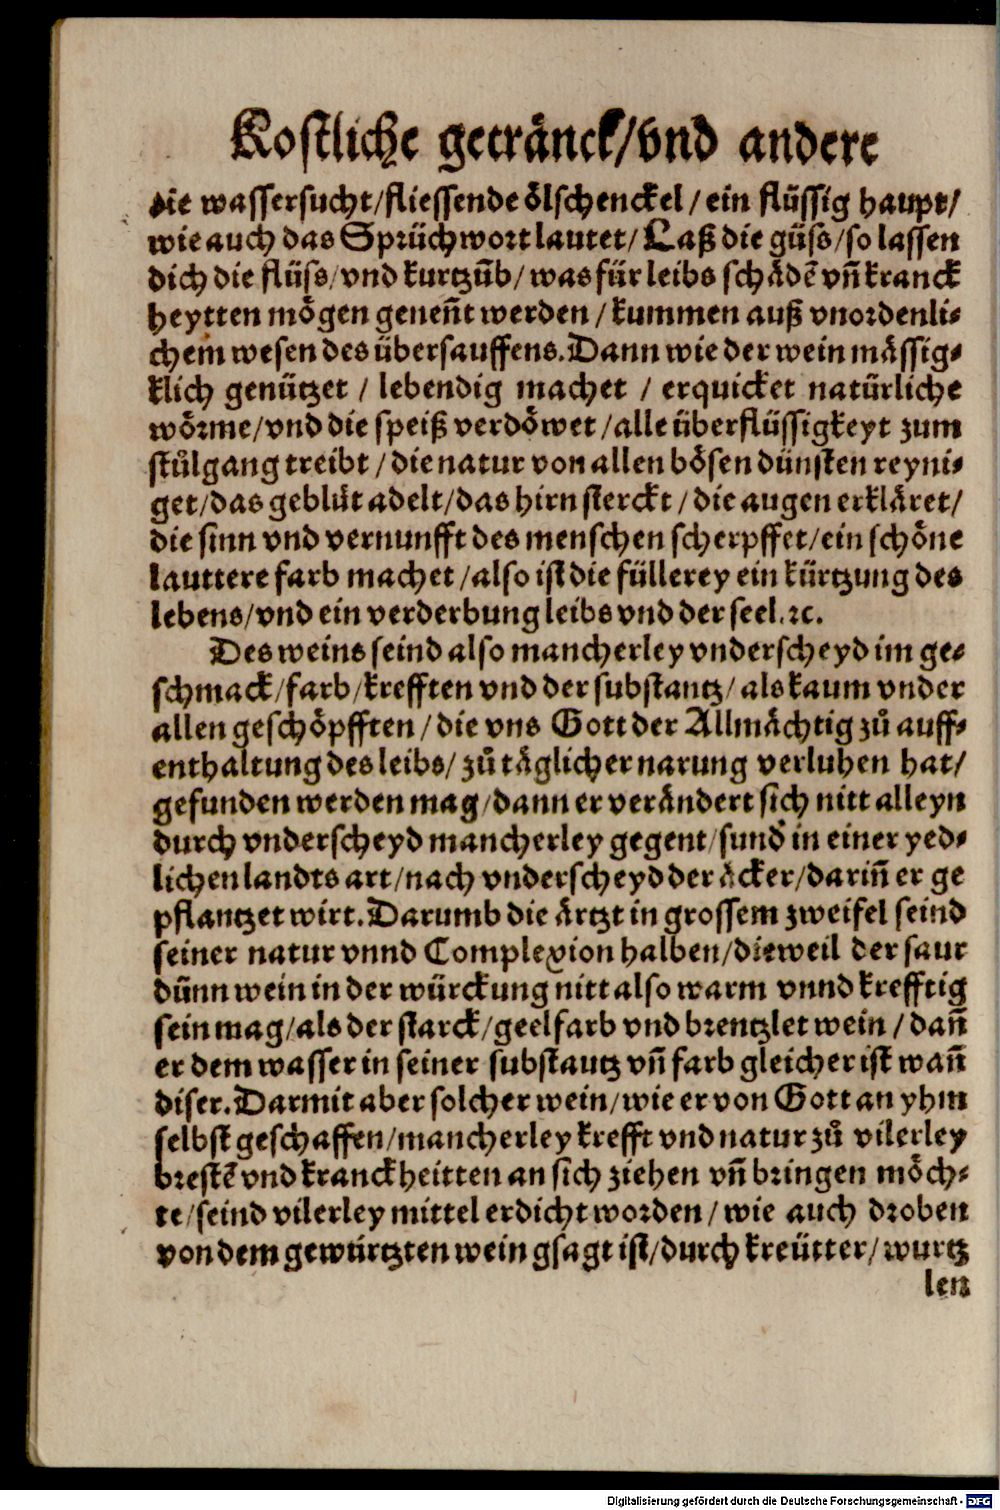 Kostliche getränck/vnd andere
die wassersucht/fliessende ölschenckel/ein flüssig haupt/
wie auch das Sprüchwort lautet/Laß die güss/so lassen
dich die flüss/vnd kurtzüb/was für leibs schädē vn̄ kranck
heytten mögen geneñt werden/kummen auß vnordenli-
chem wesen des übersauffens. Dann wie der wein mässig-
klich genützet/lebendig machet/erquicket natürliche
wörme/vnd die speiß verdöwet/alle überflüssigkeyt zum
stůlgang treibt/die natur von allen bösen dünsten reyni-
get/das geblüt adelt/das hirn sterckt/die augen erkläret/
die sinn vnd vernunfft des menschen scherpffet/ein schöne
lauttere farb machet/also ist die füllerey ein kürtzung des
lebens/vnd ein verderbung leibs vnd der seel. ꝛc.
Des weins seind also mancherley vnderscheyd im ge-
schmack/farb/krefften vnd der substantz/als kaum vnder
allen geschöpfften/die vns Gott der Allmächtig zů auff-
enthaltung des leibs/zů täglicher narung verluhen hat/
gefunden werden mag/dann er verändert sich nitt alleyn
durch vnderscheyd mancherley gegent/sund' in einer yed-
lichen landts art/nach vnderscheyd der äcker/dariñ er ge
pflantzet wirt. Darumb die ärtzt in grossem zweifel seind
seiner natur vnnd Complexion halben/dieweil der saur
dünn wein in der würckung nitt also warm vnnd krefftig
sein mag/als der starck/geelfarb vnd brentzlet wein/dañ
er dem wasser in seiner substautz vn̄ farb gleicher ist wañ
diser. Darmit aber solcher wein/wie er von Gott an yhm
selbst geschaffen/mancherley krefft vnd natur zů vilerley
brestē vnd kranckheitten an sich ziehen vn̄ bringen möch-
te/seind vilerley mittel erdicht worden/wie auch droben
von dem gewürtzten wein gsagt ist/durch kreütter/wurtz
len
Digitalisierung gefördert durch die Deutsche Forschungsgemeinschaft - DFG